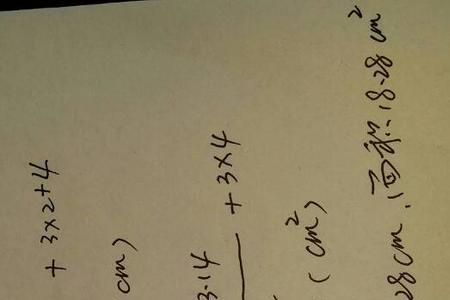 + 3×2+4
cm)
3.14 + 3×4
(cm²)
28cm,面积:18.28cm²